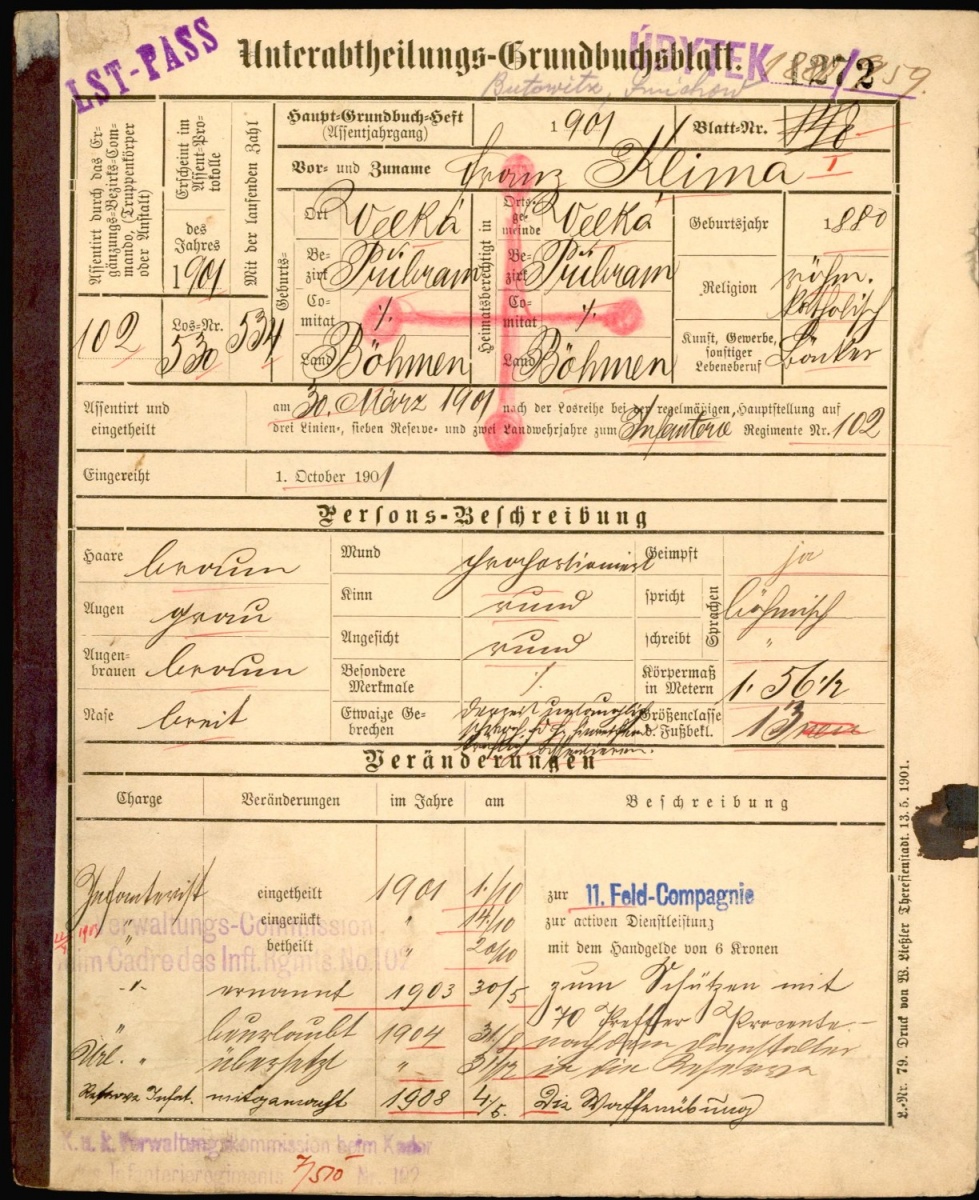 LST-PASS
ÚBYTEK
Unterabtheilungs-Grundbuchsblatt.
1272
Butowitz, Smichow
Assentirt durch das Ergänzungs-Bezirks-Commando, (Truppenkörper oder Anstalt)
102
Erscheint im Assent-Protokolle
des Jahres
1901
Los-Nr.
530
Mit der laufenden Zahl
534
Haupt-Grundbuch-Heft
(Assentjahrgang)
1901
Blatt-Nr.
148
I
Vor- und Zuname Franz Klima
Geburts-
Ort Velká
Bezirk Přibram
Comitat ·/.
Land Böhmen
Heimatsberechtigt in
Ortsgemeinde Velká
Bezirk Přibram
Comitat ·/.
Land Böhmen
Geburtsjahr 1880
Religion röhm. katholisch
Kunst, Gewerbe, sonstiger Lebensberuf Bäcker
Assentirt und eingetheilt
am 30. März 1901 nach der Losreihe bei der regelmäßigen Hauptstellung auf
drei Linien-, sieben Reserve- und zwei Landwehrjahre zum Infanterie Regimente Nr. 102
Eingereiht 1. October 1901
Persons-Beschreibung
Haare braun
Augen grau
Augenbrauen braun
Nase breit
Mund proportioniert
Kinn rund
Angesicht rund
Besondere Merkmale ·/.
Etwaige Gebrechen
Geimpft ja
Sprachen
spricht böhmisch
schreibt "
Körpermaß in Metern 1· 56 ½
Größenclasse d. Fußbekl. 13
Veränderungen
Charge Veränderungen im Jahre am Beschreibung
Infanterist eingetheilt 1901 1./10 zur 11. Feld-Compagnie
" eingerückt " 14./10 zur activen Dienstleistung
betheilt " 20/10 mit dem Handgelde von 6 Kronen
Verwaltungs-Commission
beim Cadre des Inft. Rgmts. No. 102
-"- ernannt 1903 30/5 zum Schützen mit
70 Treffer Procente.-
" beurlaubt 1904 nach dem Dienstalter
Url. " übersetzt " 31/12 in die Reserve
Reserve Infat. mitgemacht 1908 4/5. Die Waffenübung
K. u. k. Verwaltungskommission beim Kader
des Infanterieregiments Nr. 102
7/510
L.-Nr. 79. Druck von W. Ließler Theresienstadt. 13. 5. 1901.